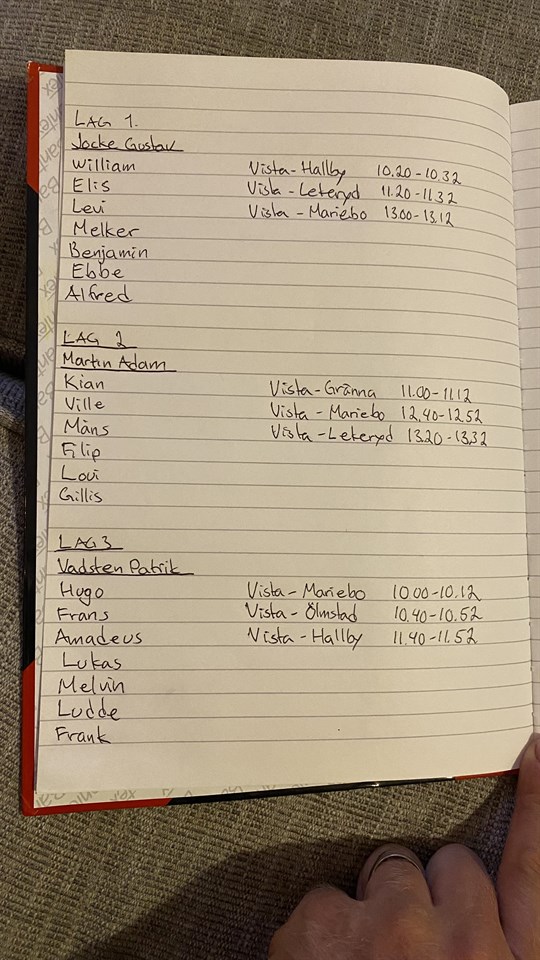 LAG 1.
Jocke Gustav
William Vista-Hallby 10.20-10.32
Elis Vista-Lekeryd 11.20-11.32
Levi Vista-Mariebo 13.00-13.12
Melker
Benjamin
Ebbe
Alfred
LAG 2
Martin Adam
Kian Vista-Gränna 11.00-11.12
Ville Vista-Mariebo 12.40-12.52
Måns Vista-Lekeryd 13.20-13.32
Filip
Lovi
Gillis
LAG 3
Vadsten Patrik
Hugo Vista-Mariebo 10.00-10.12
Frans Vista-Ölmstad 10.40-10.52
Amadeus Vista-Hallby 11.40-11.52
Lukas
Melvin
Ludde
Frank